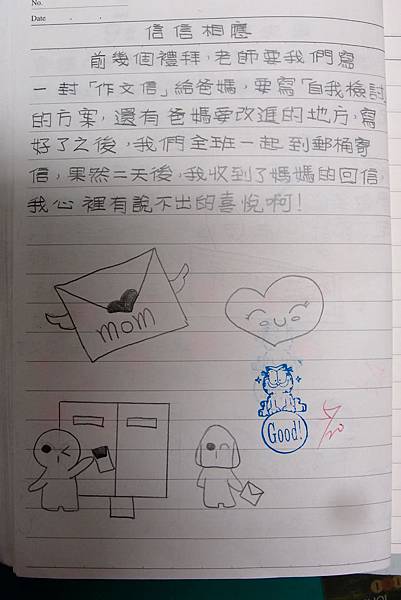 No.
Date
信信相應
前幾個禮拜,老師要我們寫
一封「作文信」給爸媽,要寫「自我檢討」
的方案,還有爸媽要改進的地方,寫
好了之後,我們全班一起到郵桶寄
信,果然二天後,我收到了媽媽的回信,
我心裡有說不出的喜悅啊!
mom
Good!